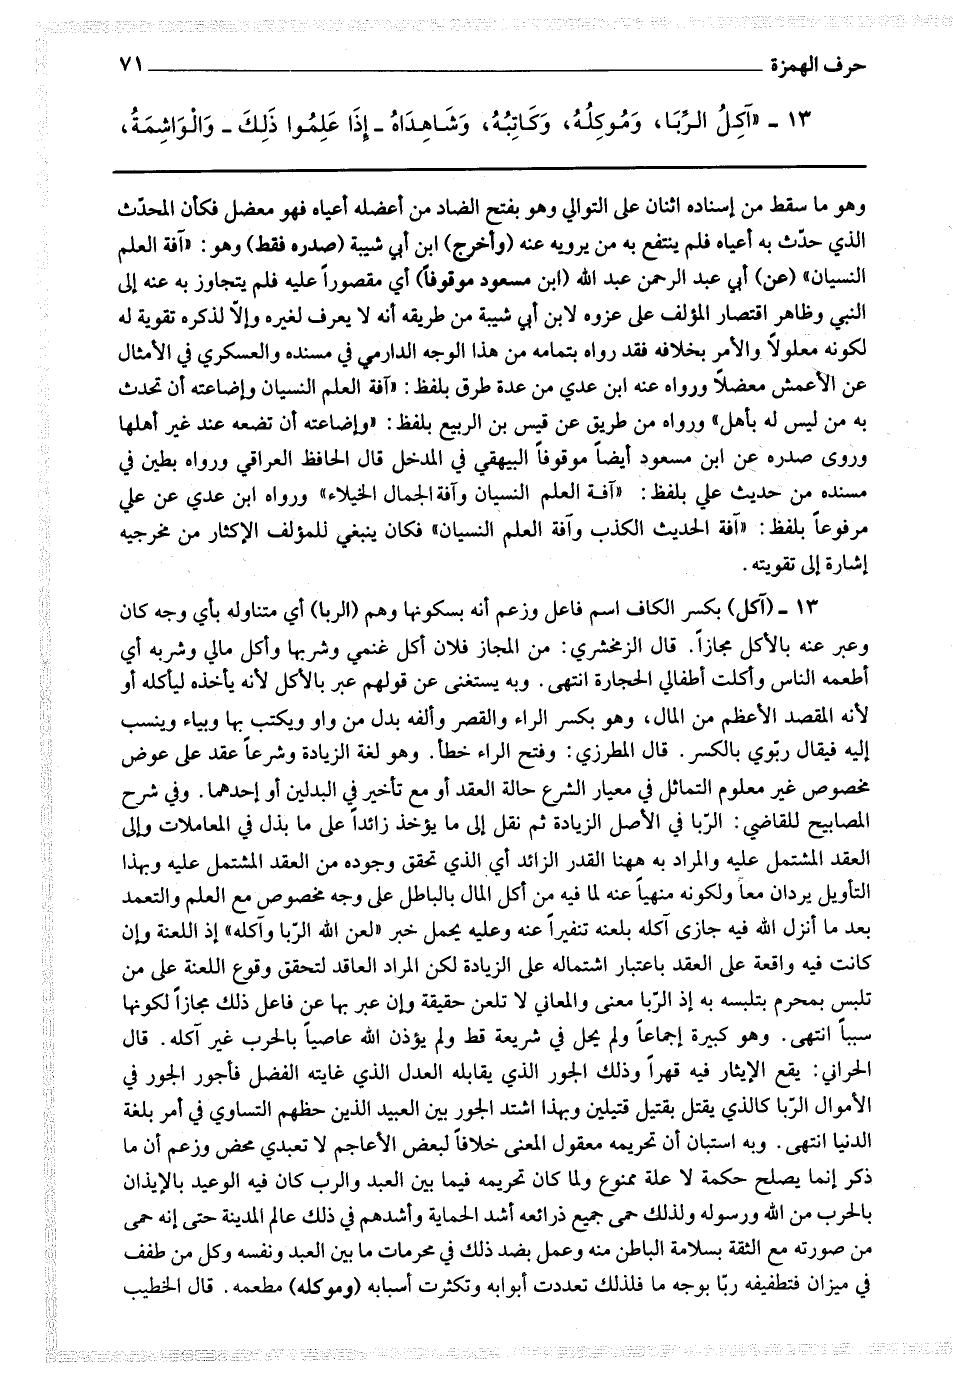 حرف الهمزة ٧١
١٣ ـ «آكِلُ الرِّبَا، وَمُوكِلُهُ، وَكَاتِبُهُ، وَشَاهِدَاهُ ـ إِذَا عَلِمُوا ذَلِكَ ـ وَالْوَاشِمَةُ،
وهو ما سقط من إسناده اثنان على التوالي وهو بفتح الضاد من أعضله أعياه فهو معضل فكأن المحدّث
الذي حدّث به أعياه فلم ينتفع به من يرويه عنه (وأخرج) ابن أبي شيبة (صدره فقط) وهو: «آفة العلم
النسيان» (عن) أبي عبد الرحمن عبد الله (ابن مسعود موقوفاً) أي مقصوراً عليه فلم يتجاوز به عنه إلى
النبي وظاهر اقتصار المؤلف على عزوه لابن أبي شيبة من طريقه أنه لا يعرف لغيره وإلّا لذكره تقوية له
لكونه معلولاً والأمر بخلافه فقد رواه بتمامه من هذا الوجه الدارمي في مسنده والعسكري في الأمثال
عن الأعمش معضلاً ورواه عنه ابن عدي من عدة طرق بلفظ: «آفة العلم النسيان وإضاعته أن تحدث
به من ليس له بأهل» ورواه من طريق عن قيس بن الربيع بلفظ: «وإضاعته أن تضعه عند غير أهلها
وروى صدره عن ابن مسعود أيضاً موقوفاً البيهقي في المدخل قال الحافظ العراقي ورواه بطين في
مسنده من حديث علي بلفظ: «آفة العلم النسيان وآفة الجمال الخيلاء» ورواه ابن عدي عن علي
مرفوعاً بلفظ: «آفة الحديث الكذب وآفة العلم النسيان» فكان ينبغي للمؤلف الإكثار من مخرجيه
إشارة إلى تقويته.
١٣ ـ (آكل) بكسر الكاف اسم فاعل وزعم أنه بسكونها وهم (الربا) أي متناوله بأي وجه كان
وعبر عنه بالأكل مجازاً. قال الزمخشري: من المجاز فلان أكل غنمي وشربها وأكل مالي وشربه أي
أطعمه الناس وأكلت أظفالي الحجارة انتهى. وبه يستغنى عن قولهم عبر بالأكل لأنه يأخذه ليأكله أو
لأنه المقصد الأعظم من المال، وهو بكسر الراء والقصر وألفه بدل من واو ويكتب بها وبياء وينسب
إليه فيقال ربّوي بالكسر. قال المطرزي: وفتح الراء خطأ. وهو لغة الزيادة وشرعاً عقد على عوض
مخصوص غير معلوم التماثل في معيار الشرع حالة العقد أو مع تأخير في البدلين أو إحدهما. وفي شرح
المصابيح للقاضي: الرّبا في الأصل الزيادة ثم نقل إلى ما يؤخذ زائداً على ما بذل في المعاملات وإلى
العقد المشتمل عليه والمراد به ههنا القدر الزائد أي الذي تحقق وجوده من العقد المشتمل عليه وبهذا
التأويل يردان معاً ولكونه منهياً عنه لما فيه من أكل المال بالباطل على وجه مخصوص مع العلم والتعمد
بعد ما أنزل الله فيه جازى آكله بلعنه تنفيراً عنه وعليه يحمل خبر «لعن الله الرّبا وآكله» إذ اللعنة وإن
كانت فيه واقعة على العقد باعتبار اشتماله على الزيادة لكن المراد العاقد لتحقق وقوع اللعنة على من
تلبس بمحرم بتلبسه به إذ الرّبا معنى والمعاني لا تلعن حقيقة وإن عبر بها عن فاعل ذلك مجازاً لكونها
سبباً انتهى. وهو كبيرة إجماعاً ولم يحل في شريعة قط ولم يؤذن الله عاصياً بالحرب غير آكله. قال
الحراني: يقع الإيثار فيه قهراً وذلك الجور الذي يقابله العدل الذي غايته الفضل فأجور الجور في
الأموال الرّبا كالذي يقتل بقتيل قتيلين وبهذا اشتد الجور بين العبيد الذين حظهم التساوي في أمر بلغة
الدنيا انتهى. وبه استبان أن تحريمه معقول المعنى خلافاً لبعض الأعاجم لا تعبدي محض وزعم أن ما
ذكر إنما يصلح حكمة لا علة ممنوع ولما كان تحريمه فيما بين العبد والرب كان فيه الوعيد بالإيذان
بالحرب من الله ورسوله ولذلك حمى جميع ذرائعه أشد الحماية وأشدهم في ذلك عالم المدينة حتى إنه حمى
من صورته مع الثقة بسلامة الباطن منه وعمل بضد ذلك في محرمات ما بين العبد ونفسه وكل من طفف
في ميزان فتطفيفه ربّا بوجه ما فلذلك تعددت أبوابه وتكثرت أسبابه (وموكله) مطعمه. قال الخطيب